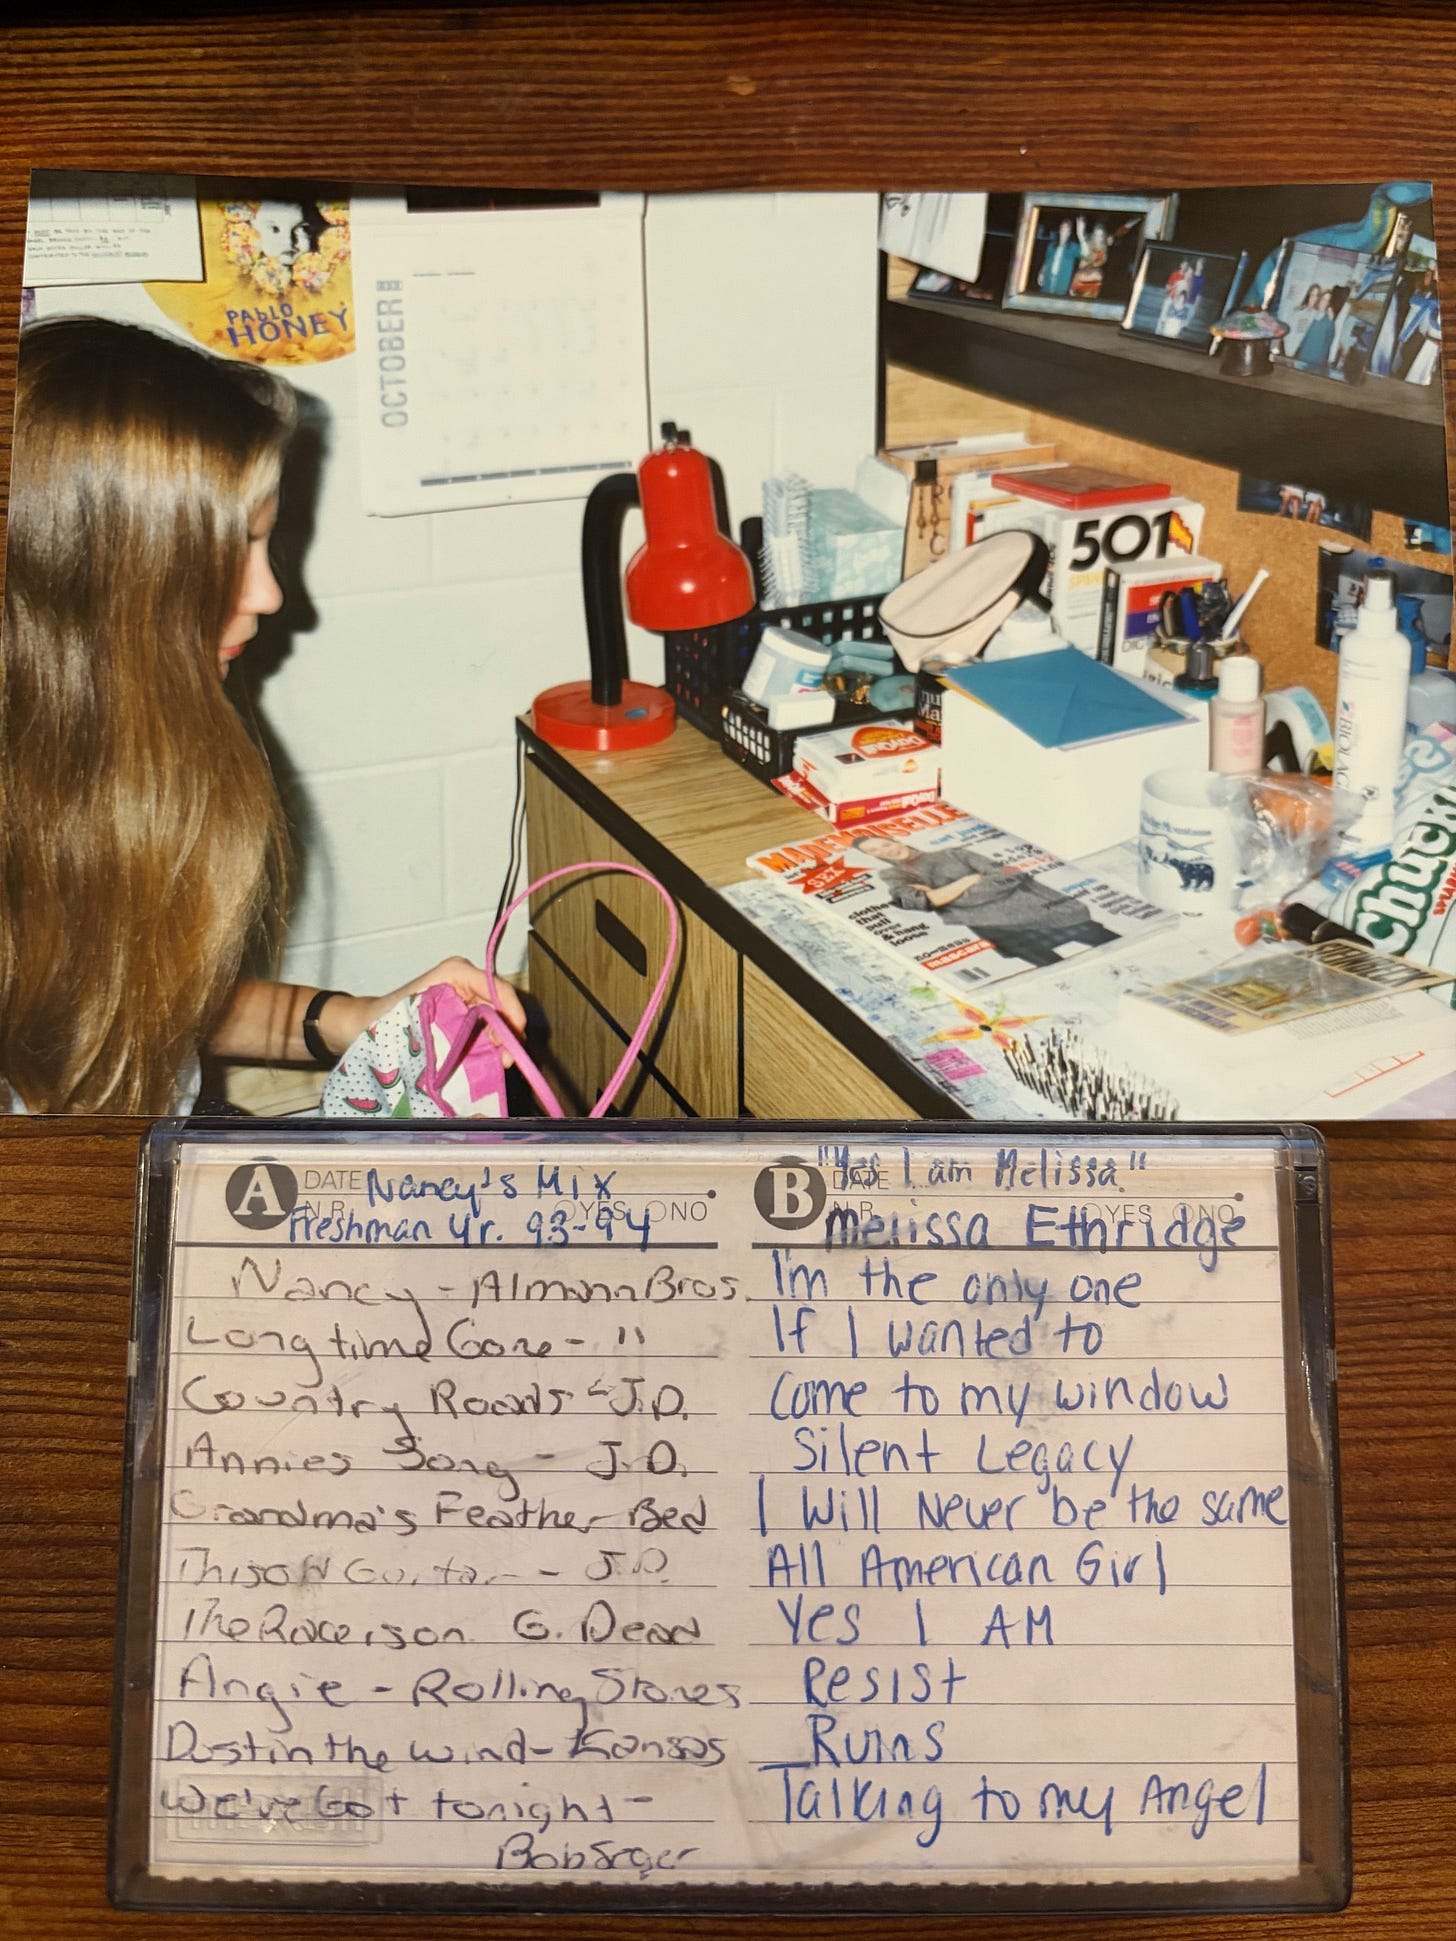 PABLO
HONEY
OCTOBER
501
MADEMOISELLE
SEX
clothes
that
pull
over
& hang
loose
mascara
DayQuil
BIOLAGE
Chuck
A DATE Nancy's Mix
N.R. YES NO
Freshman yr. 93-94
Nancy - Almann Bros.
Long time Gone - "
Country Roads - J.D.
Annies Song - J.D.
Grandma's Feather Bed
This old Guitar - J.D.
The Race is on G. Dead
Angie - Rolling Stones
Dust in the wind - Kansas
We've Got tonight -
Bob Seger
B DATE "Yes I am Melissa"
N.R. YES NO
Melissa Ethridge
I'm the only one
If I wanted to
Come to my window
Silent Legacy
I Will Never be the same
All American Girl
Yes I AM
Resist
Ruins
Talking to my Angel